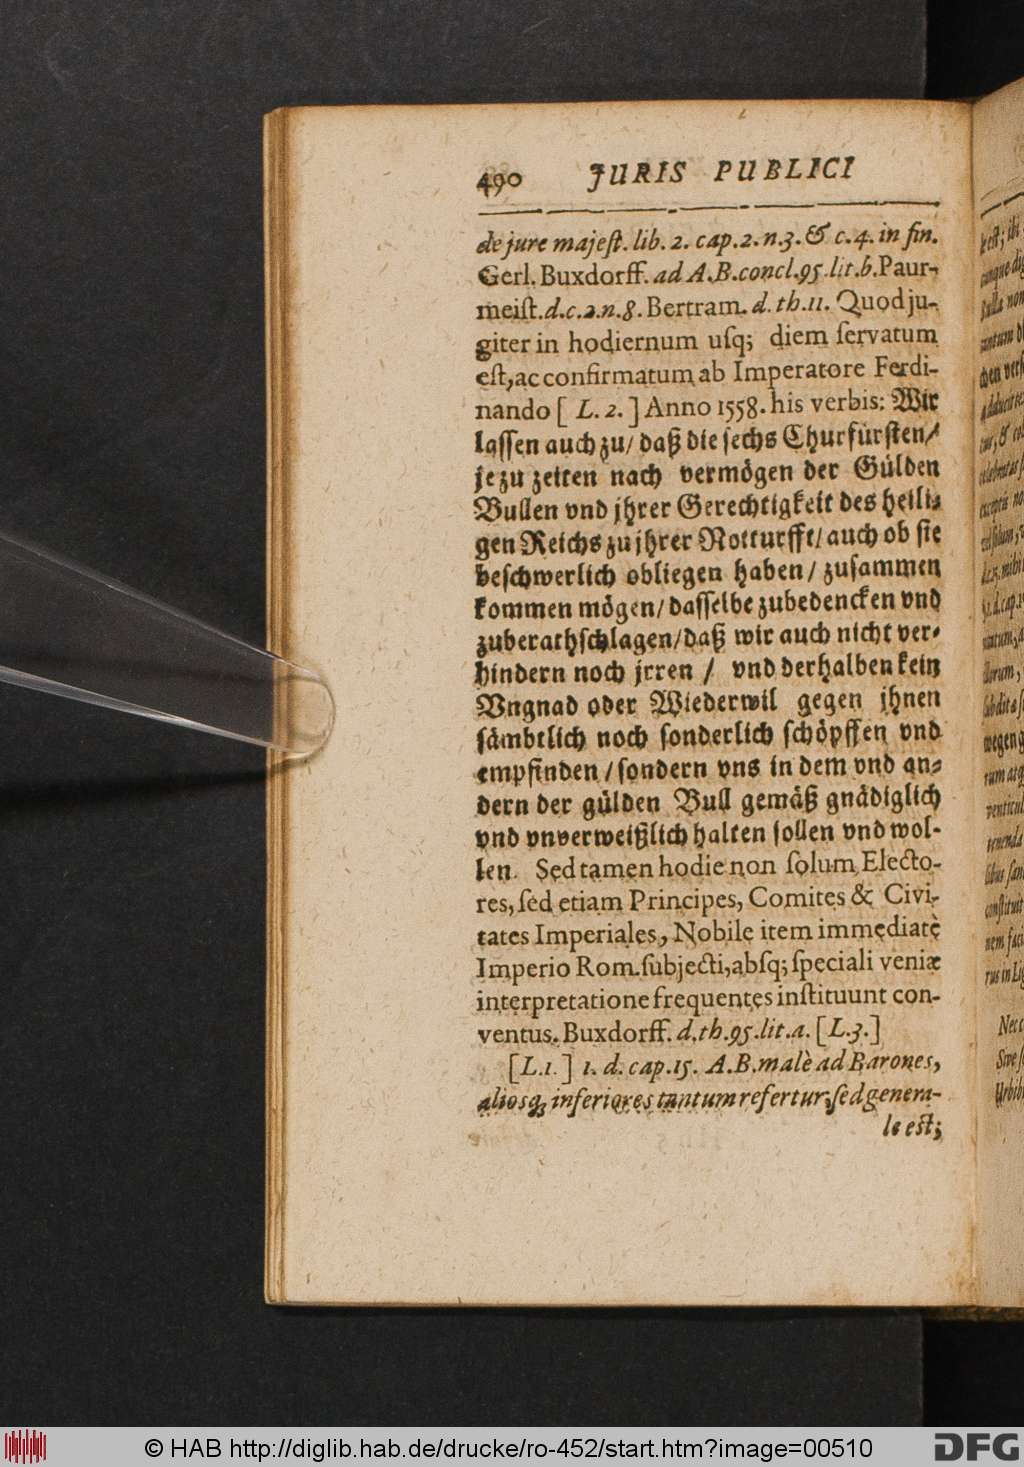 490 JURIS PUBLICI
de jure majeſt. lib. 2. cap. 2. n. 3. & c. 4. in fin.
Gerl. Buxdorff. ad A. B. concl. 95. lit. b. Paur-
meiſt. d. c. 2. n. 8. Bertram. d. th. 11. Quod ju-
giter in hodiernum uſq; diem ſervatum
eſt, ac confirmatum ab Imperatore Ferdi-
nando [ L. 2. ] Anno 1558. his verbis: Wir
laſſen auch zu/ daß die ſechs Churfürſten/
je zu zeiten nach vermögen der Gülden
Bullen vnd jhrer Gerechtigkeit des heili-
gen Reichs zu jhrer Notturfft/ auch ob ſie
beſchwerlich obliegen haben/ zuſammen
kommen mögen/ daſſelbe zubedencken vnd
zuberathſchlagen/ daß wir auch nicht ver-
hindern noch jrren / vnd derhalben kein
Vngnad oder Wiederwil gegen jhnen
ſämbtlich noch ſonderlich ſchöpffen vnd
empfinden / ſondern vns in dem vnd an-
dern der gülden Bull gemäß gnädiglich
vnd vnverweißlich halten ſollen vnd wol-
len. Sed tamen hodie non ſolum Electo-
res, ſed etiam Principes, Comites & Civi-
tates Imperiales, Nobile item immediatè
Imperio Rom. ſubjecti, abſq; ſpeciali veniæ
interpretatione frequentes inſtituunt con-
ventus. Buxdorff. d. th. 95. lit. a. [L. 3.]
[L. 1.] 1. d. cap. 15. A. B. malè ad Barones,
aliosq; inferiores tantum refertur, ſed genera-
le eſt;
© HAB http://diglib.hab.de/drucke/ro-452/start.htm?image=00510
DFG